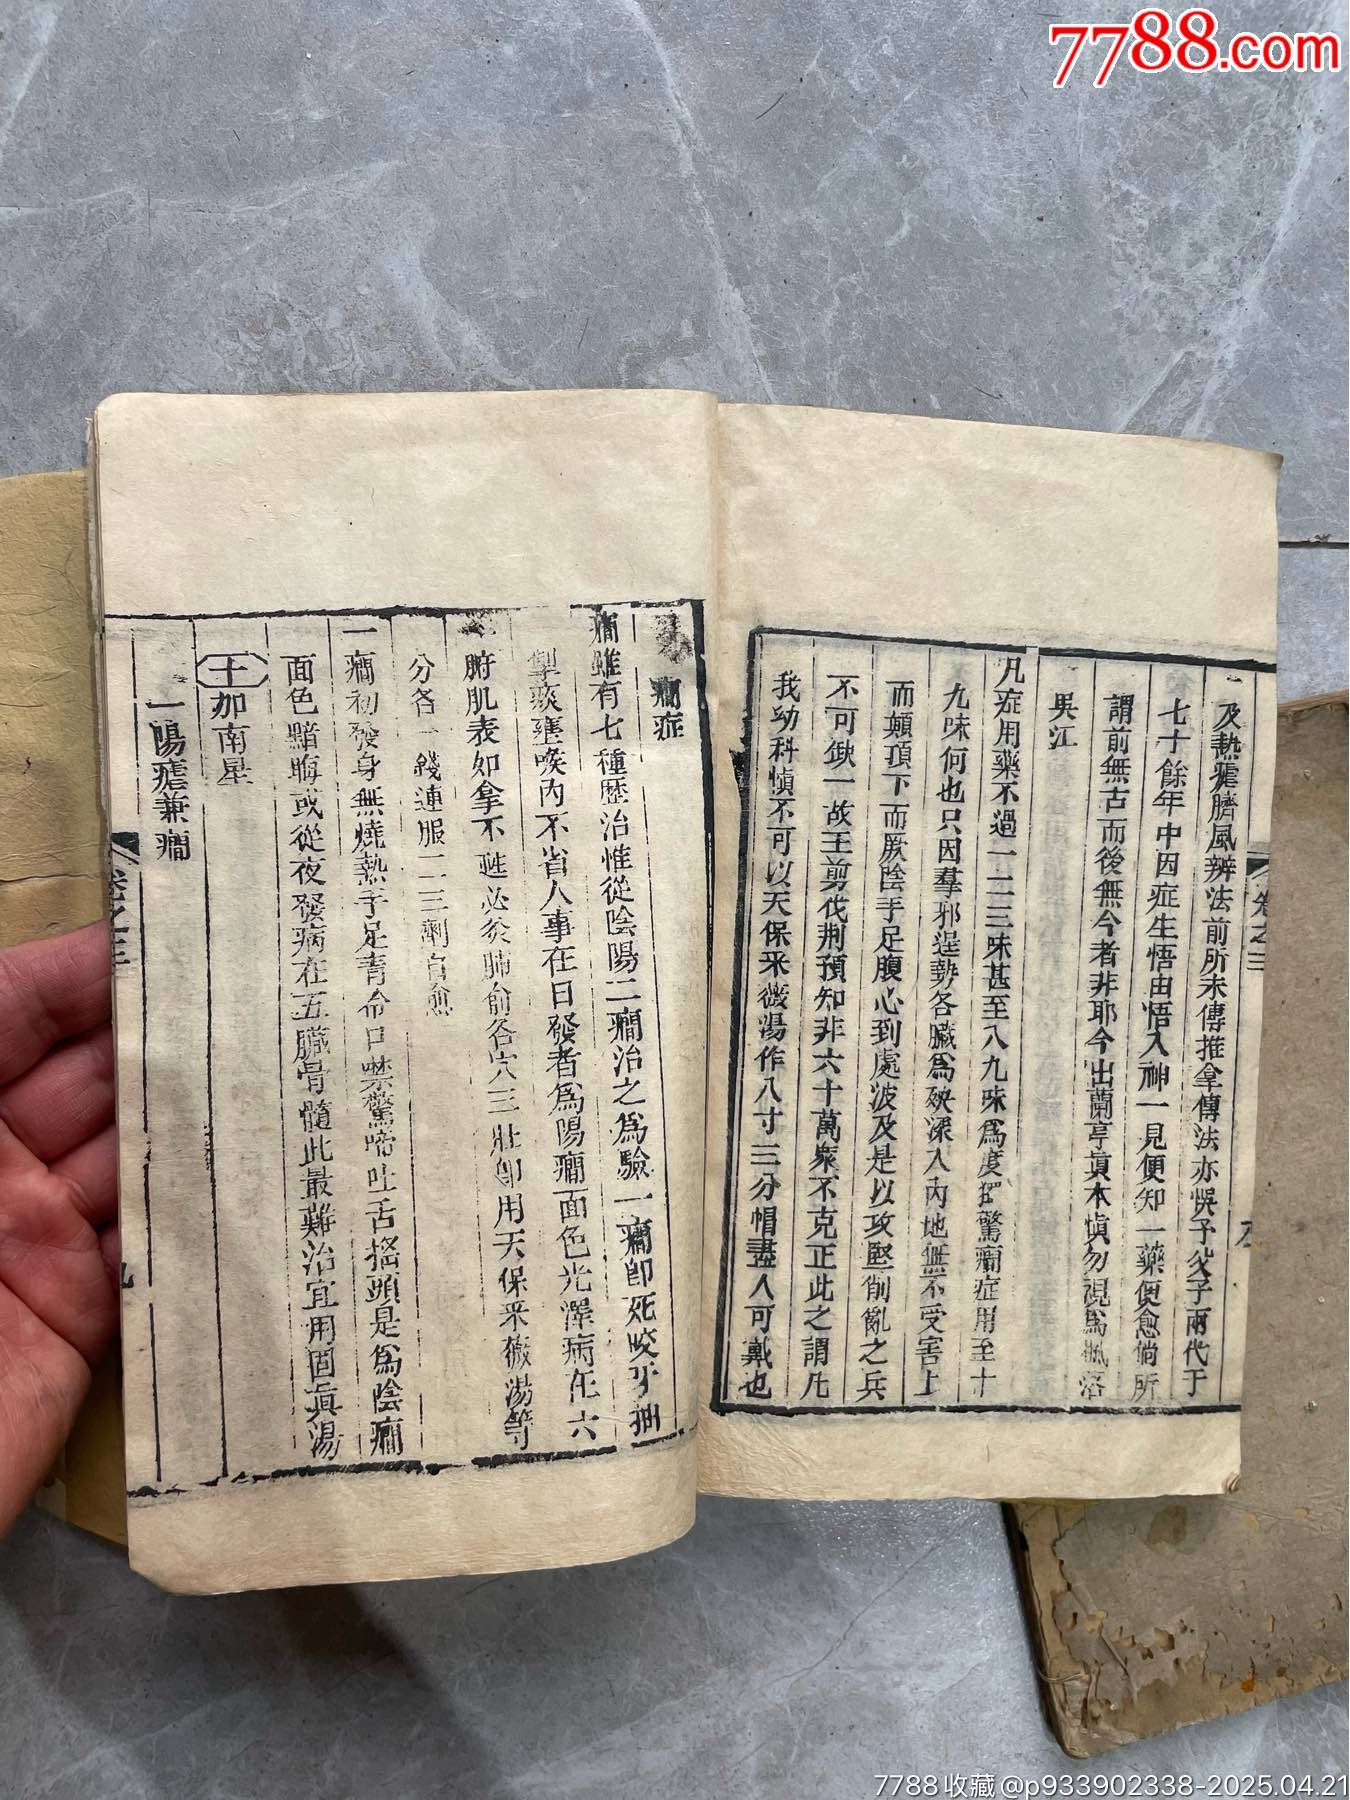 7788.com
一及熱瘧臍風辨法前所未傳推拿傳法亦懊予父子兩代于
七十餘年中因症生悟由悟入神一見便知一藥便愈倘所
謂前無古而後無今者非耶今出蘭亭眞本愼勿視爲
吳江
凡症用藥不過一二三味甚至八九味爲度獨驚癎症用至十
九味何也只因羣邪逞勢各臟爲殃深入內地無不受害上
而顚頂下而厥陰手足腹心到處波及是以攻堅削亂之兵
不可缺一故王剪伐荆預知非六十萬衆不克正此之謂凡
我幼科愼不可以天保釆薇湯作八寸三分帽盡人可戴也
卷之三
癎症
癎雖有七種歷治惟從陰陽二癎治之爲驗一癎卽死咬牙抽
掣痰壅喉內不省人事在日發者爲陽癎面色光澤病在六
腑肌表如拿不甦必灸肺俞各穴三壯卽用天保釆薇湯等
分各一錢連服二三劑自愈
一癎初發身無燒熱手足青冷口噤驚啼吐舌搖頭是爲陰癎
面色黯晦或從夜發病在五臟骨髓此最難治宜用固眞湯
十加南星
一陽瘧兼癎
卷之三
九
7788收藏@p933902338-2025.04.21